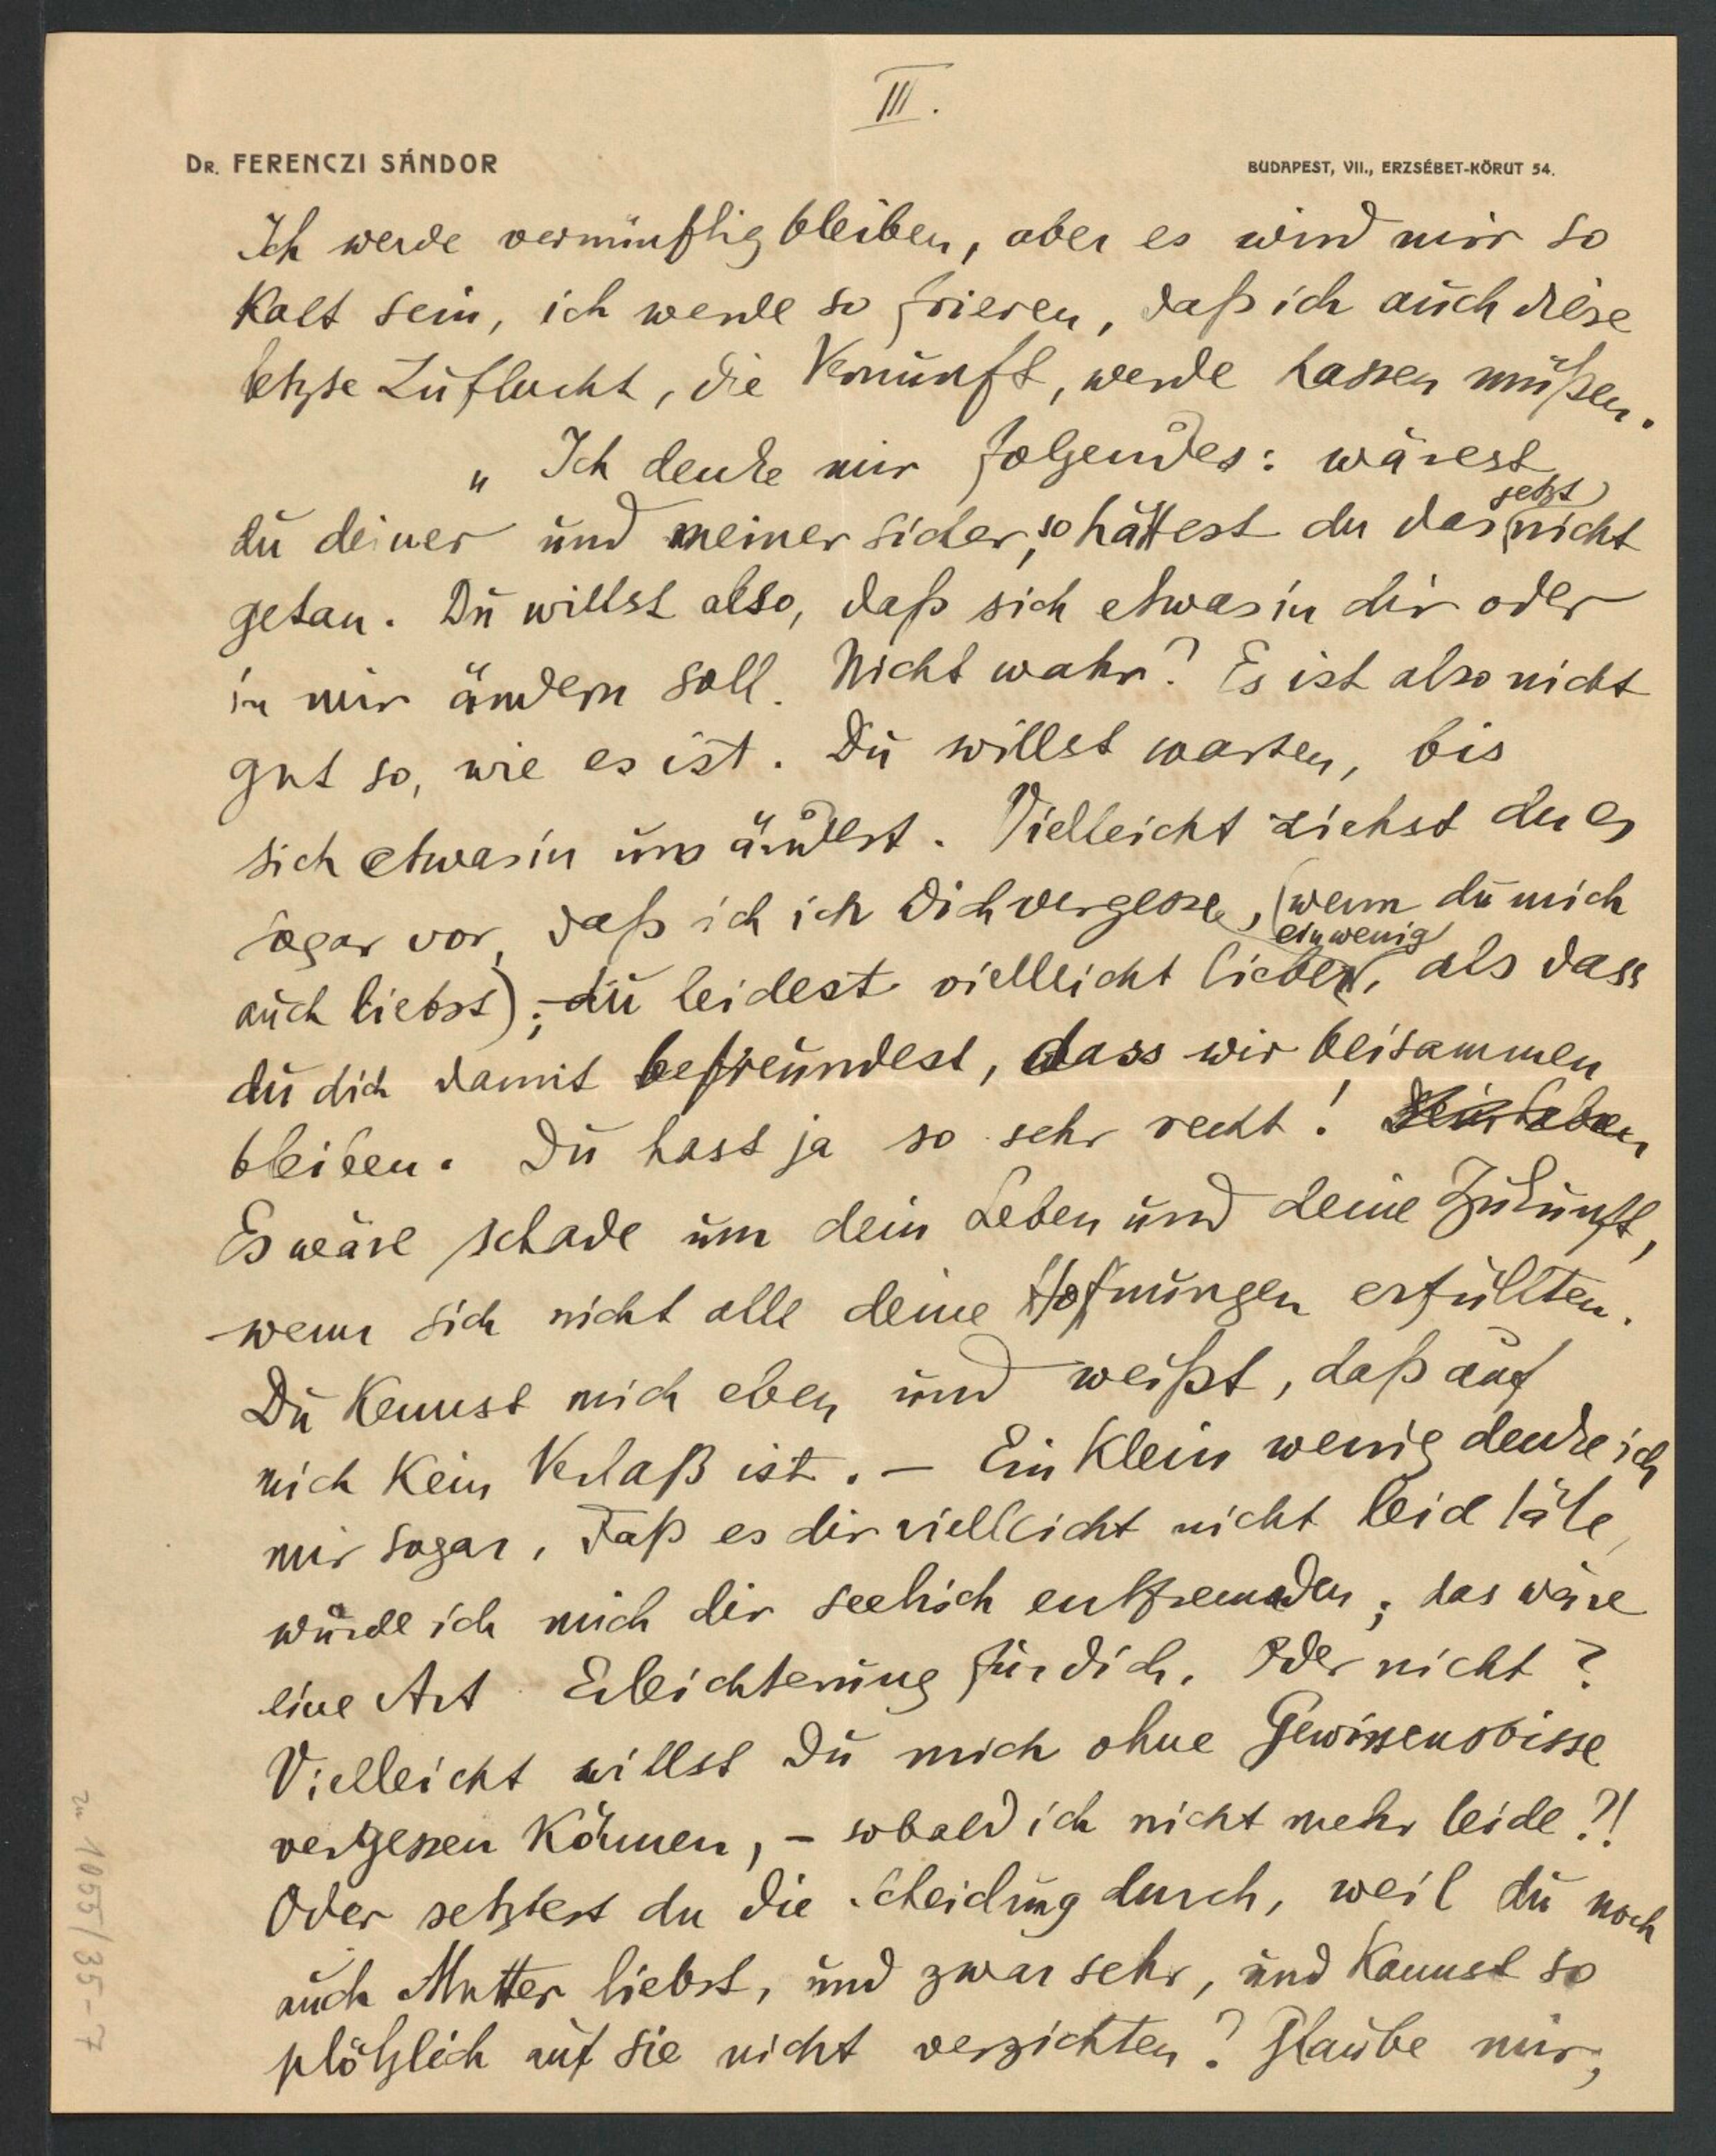 III.
DR. FERENCZI SÁNDOR
BUDAPEST, VII., ERZSÉBET-KÖRUT 54.
Ich werde vernünftig bleiben, aber es wird mir so
kalt sein, ich werde so frieren, daß ich auch diese
letzte Zuflucht, die Vernunft, werde hassen müßen.
„ Ich denke mir folgendes: wärest
du deiner und meiner sicher, so hättest du das jetzt nicht
getan. Du willst also, daß sich etwas in dir oder
in mir ändern soll. Nicht wahr? Es ist also nicht
gut so, wie es ist. Du willst warten, bis
sich etwas in uns ändert. Vielleicht ziehst du es
sogar vor, daß ich ich Dich vergesse, (wenn du mich
ein wenig
auch liebst); du leidest vielleicht lieber, als dass
du dich damit befreundest, dass wir beisammen
bleiben. Du hast ja so sehr recht! Dein Leben
Es wäre schade um dein Leben und deine Zukunft,
wenn sich nicht alle deine Hofnungen erfüllten.
Du kennst mich eben und weißt, daß auf
mich kein Verlaß ist. – Ein klein wenig denke ich
mir sogar, daß es dir vielleicht nicht leid täte,
würde ich mich dir seelisch entfremden; das wäre
eine Art Erleichterung für dich. Oder nicht?
Vielleicht willst Du mich ohne Gewissensbisse
vergessen können, – sobald ich nicht mehr leide?!
Oder setztest du die Scheidung durch, weil du noch
auch Mutter liebst, und zwar sehr, und kannst so
plötzlich auf sie nicht verzichten? Glaube mir,
zu 1055/35-7